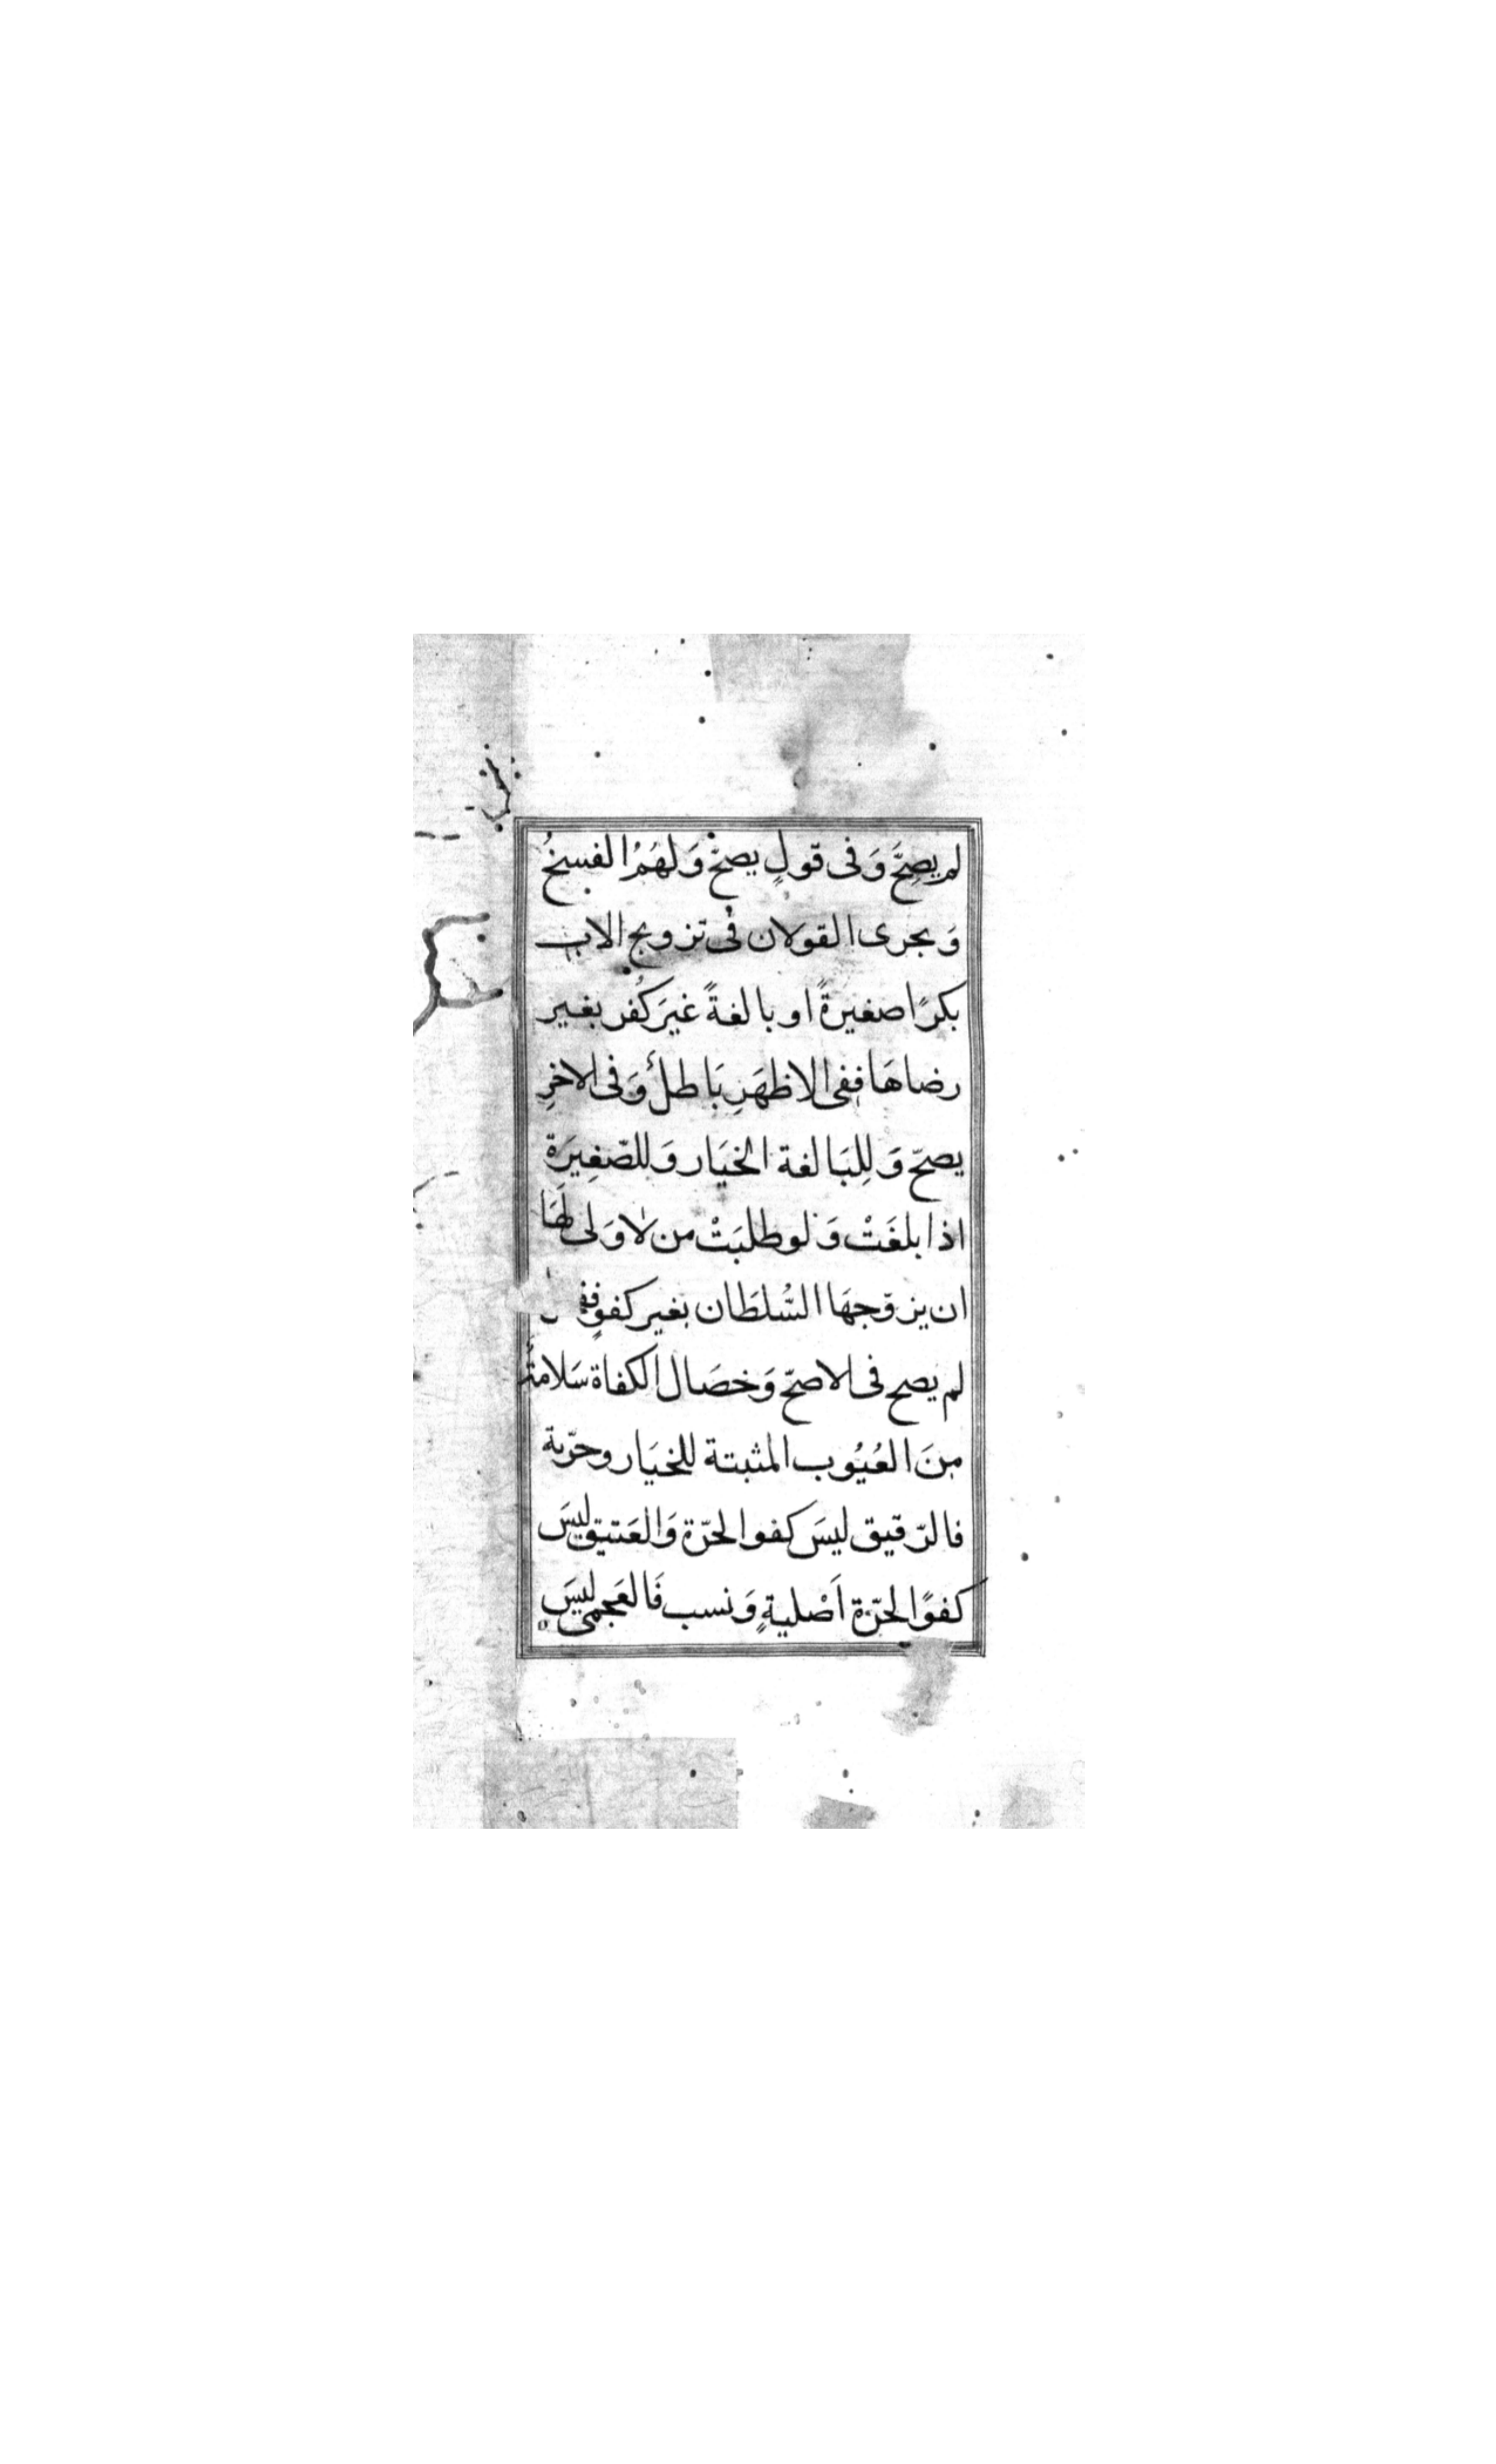 لم يصِحَّ وَفى قولٍ يصحّ وَلهُمُ الفسخُ
وَيجرى القولان فى تزويج الاب
بكرًا صغيرةً او بالغةً غيرَ كُفر بغير
رضاهَا ففى الاظهَرِ بَاطلٌ وَفى الاخرِ
يصحّ وَلِلبَالغة الخيَار وَللصّغِيرَة
اذا بلغَتْ وَلوطلبَتْ من لاوَلى لهَا
ان يزوّجهَا السُّلطَان بغير كفوٍ
لم يصح فى الاصحّ وَخصَال الكفاة سَلامةٌ
مِنَ العُيُوب المثبتة للخيَار وحرّية
فالرّقيق ليسَ كفوا لحرّة وَالعَتيق ليسَ
كفوًا لحرّة اَصْليةٍ وَنسب فَالعَجمى ليسَ